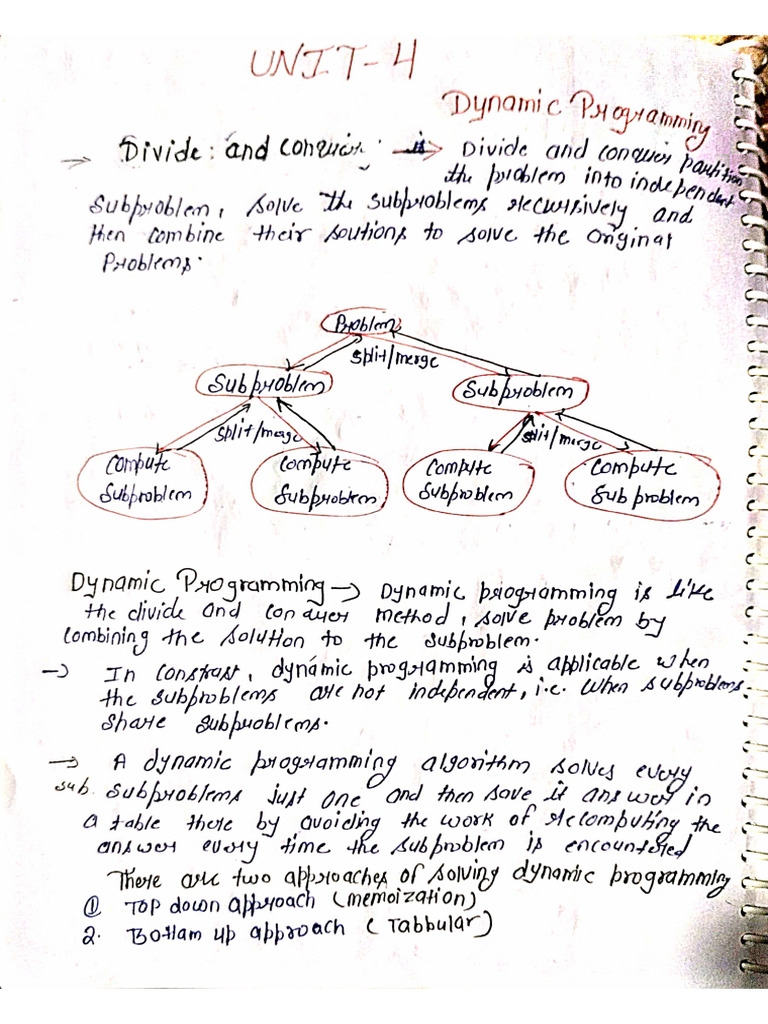 UNIT-4
Dynamic Programming
→ Divide: and conquer: is → Divide and conquer partition
the problem into independent
Subproblem, solve the subproblems recursively and
then combine their soutions to solve the original
Problems.
Problem
split/merge
Subproblem
Subproblem
split/merge
split/merge
Compute
Subproblem
Compute
Subproblem
Compute
Subproblem
Compute
Subproblem
Dynamic Programming → Dynamic programming is like
the divide and conquer method, solve problem by
combining the solution to the subproblem.
→ In constrast, dynamic programming is applicable when
the subproblems are not independent, i.e. when subproblems
share subproblems.
→ A dynamic programming algorithm solves every
sub. subproblems just one and then save it answer in
a table there by avoiding the work of recomputing the
answer every time the subproblem is encountered
There are two approaches of solving dynamic programming
① Top down approach (memoization)
2. Bottam up approach (Tabbular)